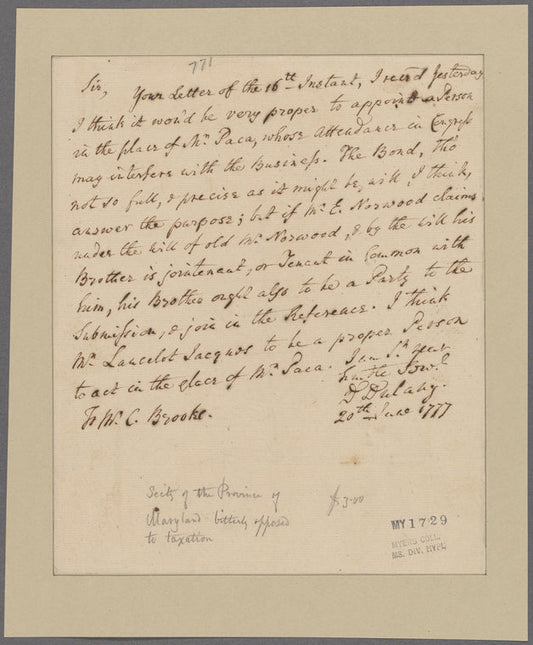 771
Sir, Your Letter of the 16th Instant, I rec'd Yesterday
I think it wou'd be very proper to appoint a Person
in the place of Mr. Paca, whose attendance in Congress
may interfere with the Business. The Bond, tho'
not so full, & precise as it might be, will, I think,
answer the purpose; but if Mr. E. Norwood claims
under the will of old Mr. Norwood, & by the will his
Brother is jointenant, or Tenant in Common with
him, his Brother ought also to be a Party to the
Submission, & join in the Reference. I think
Mr. Lancelot Jacques to be a proper Person
to act in the place of Mr. Paca. I am Sr. your
humble Servt.
D Dulany.
To Mr. C. Brooke. 20th June 1777
Secty of the Province of
Maryland bitterly opposed
to taxation
$3.00
MY 1729
MYERS COLL.
MS. DIV. NYPL